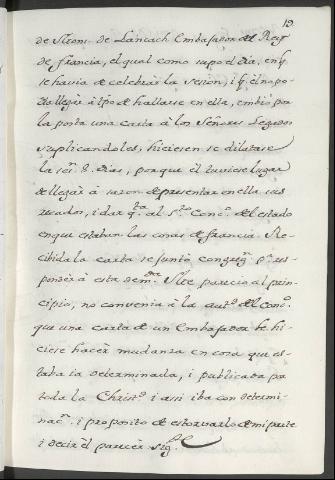 19
de Mons. de Lansach Embaxador del Rey
de francia, el qual como supo el dia, en q̃
se havia de celebrar la sesion, i q̃ el no po-
dia llegar à tpõ de hallarse en ella, embiò por
la posta una carta à los Señores Legados
suplicandoles, hiciesen se dilatase
la sesn. 8. dias, porque èl tuviese lugar
de llegar à sazon de presentar en ella sus
recados, i dar qta. al Sto. Conco. del estado
en que estaban las cosas de francia. Re-
cibida la carta se juntò congregn. pa. res-
ponder à esta demda. Mee pareciò al prin-
cipio, no convenia à la auto. del Conco.
que una carta de un Embaxador le hi-
ciese hacer mudanza en cosa que es-
taba ia determinada, i publicada por
toda la Christd. i asi iba con determi-
nacn. i proposito de estorvarlo de mi parte
i decir èl parecer sigte.